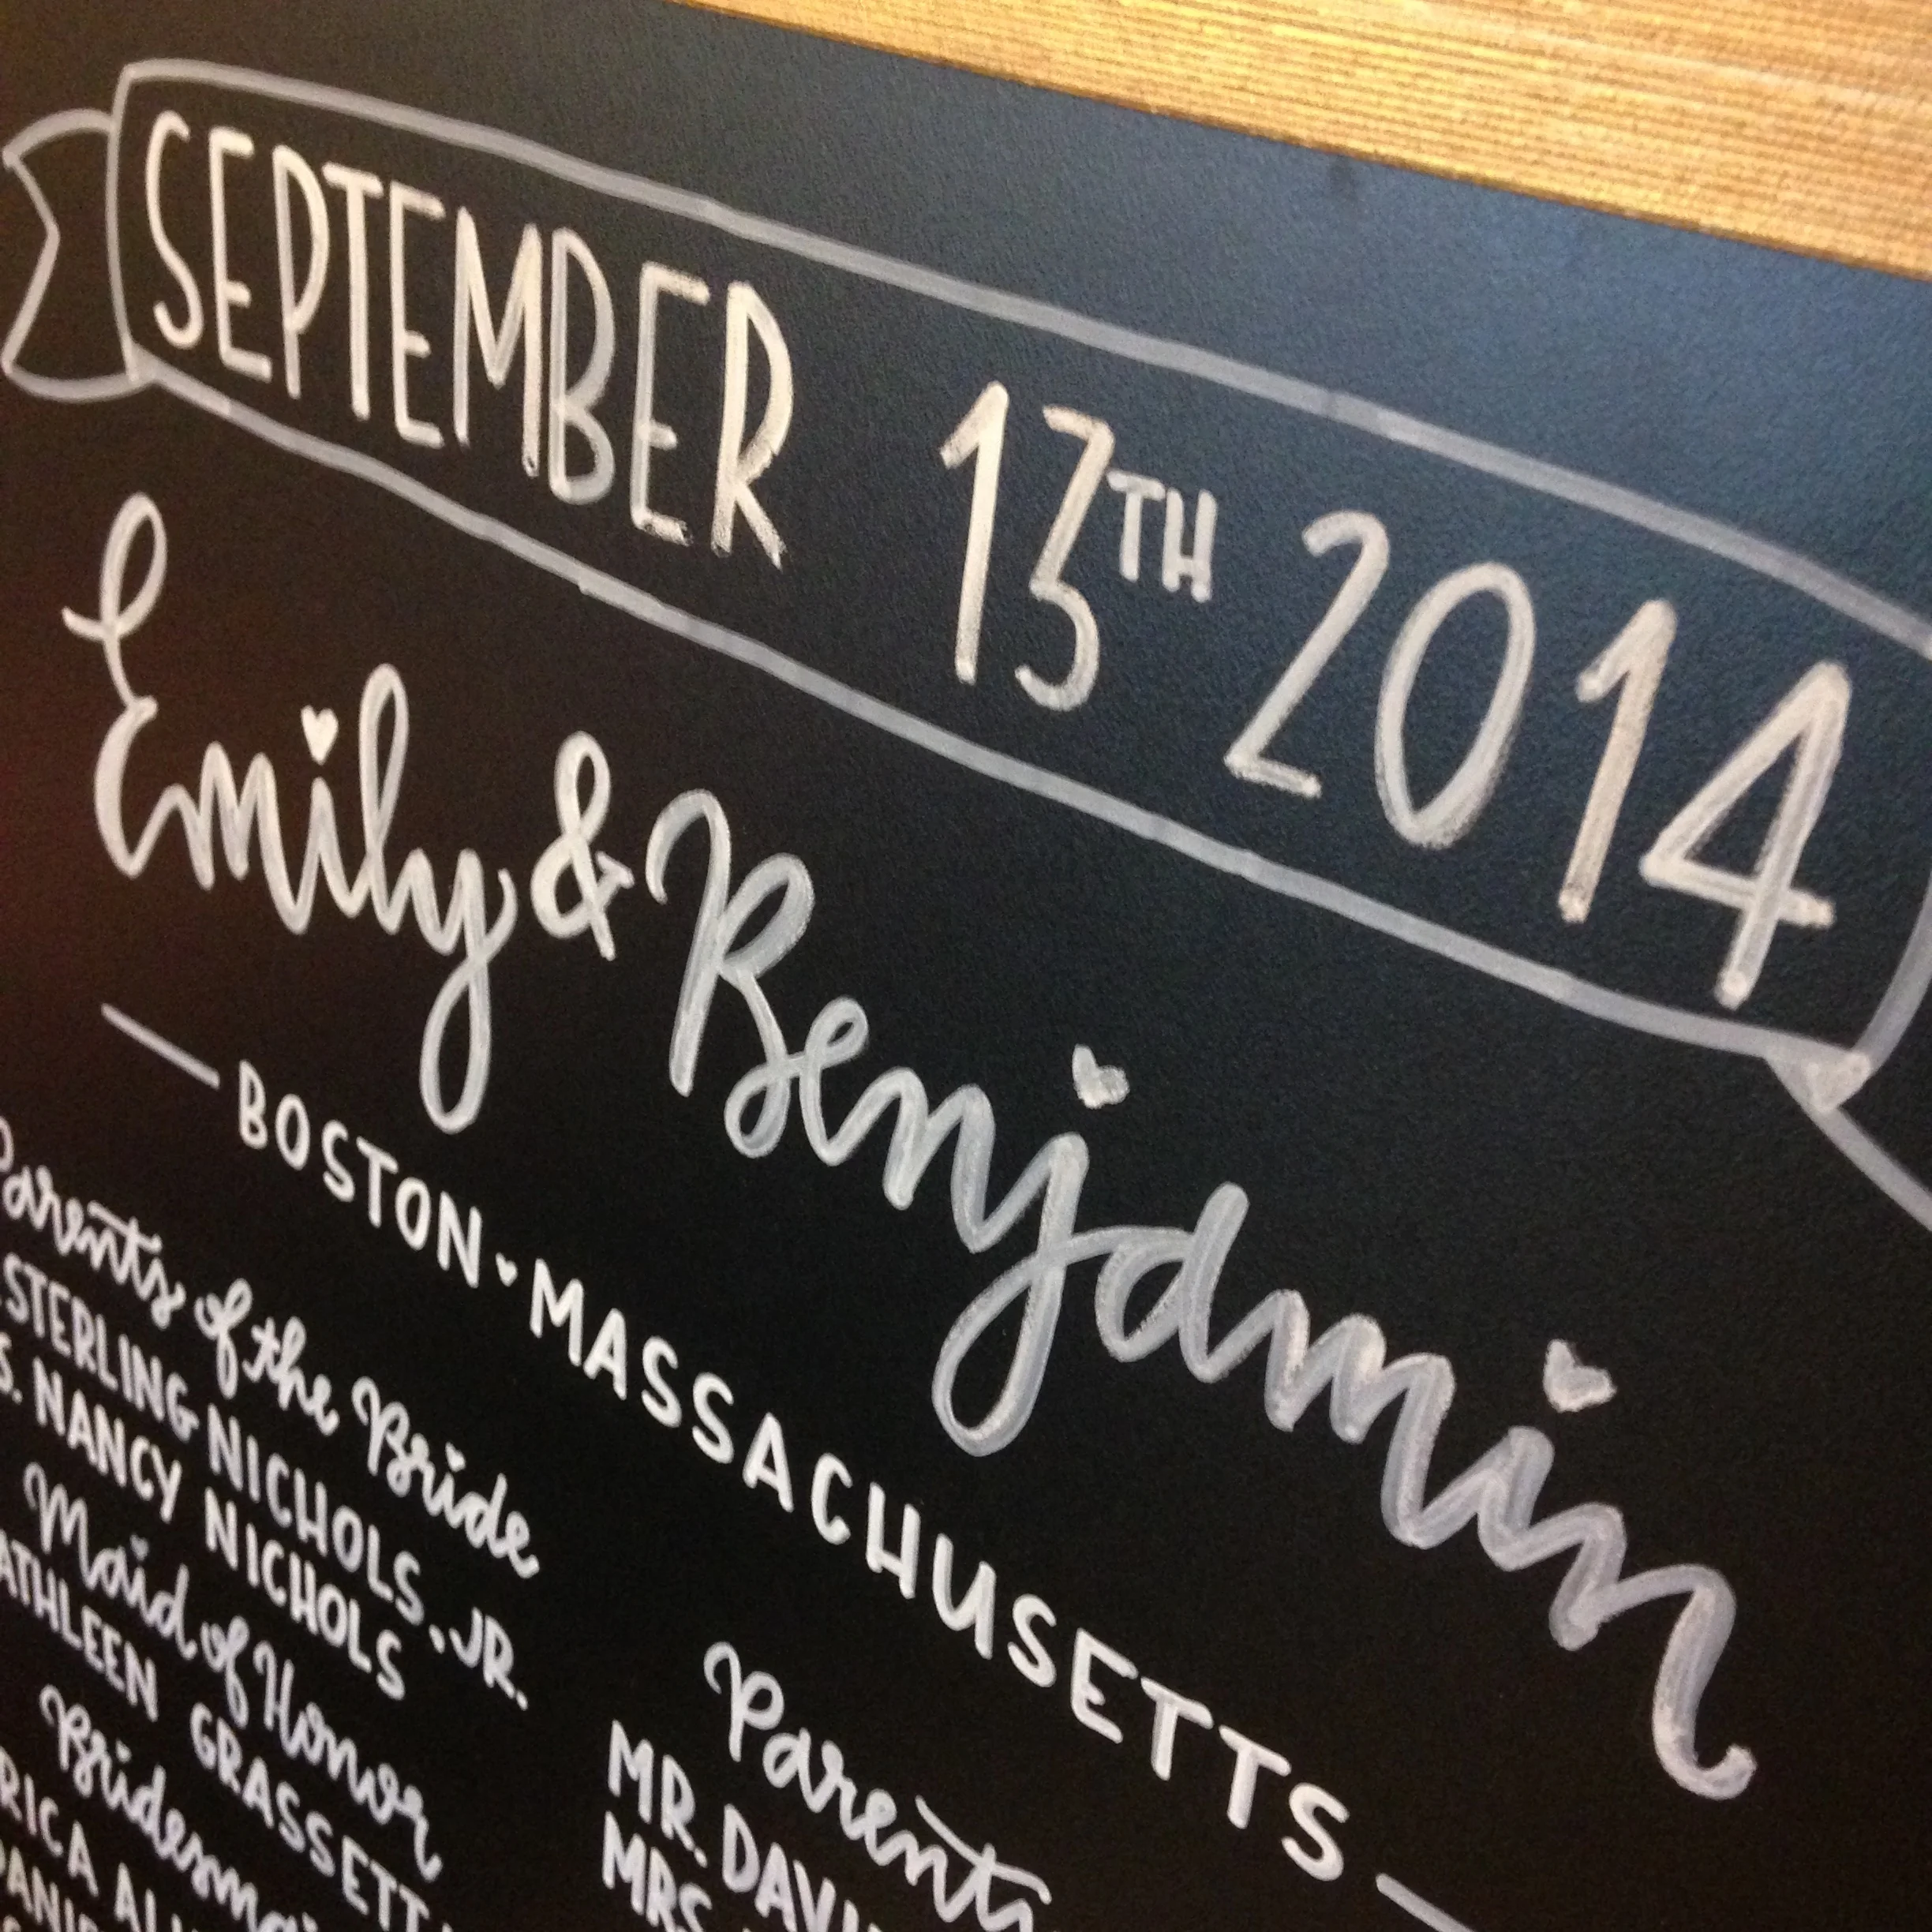 SEPTEMBER 13TH 2014
Emily & Benjamin
BOSTON MASSACHUSETTS
Parents of the Bride
STERLING NICHOLS, JR.
NANCY NICHOLS
Maid of Honor
GRASSETT
Parents
MR. DAVI
MRS.